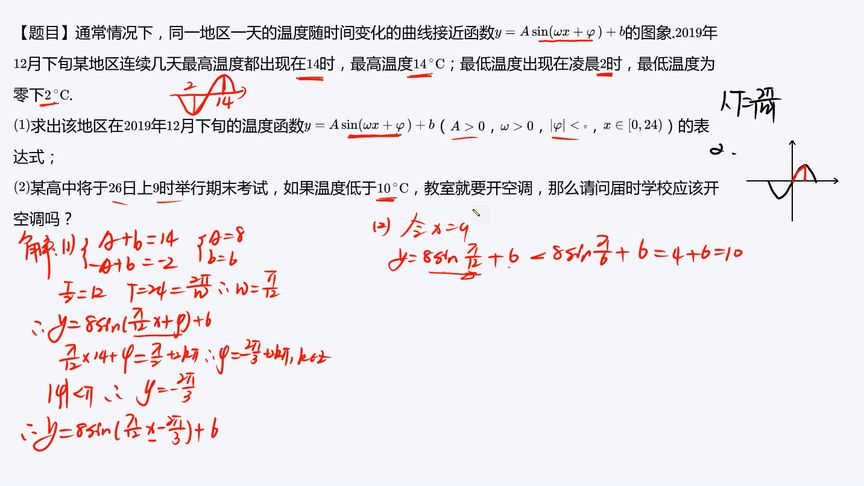 【题目】通常情况下，同一地区一天的温度随时间变化的曲线接近函数y = A sin(ωx + φ) + b的图象.2019年
12月下旬某地区连续几天最高温度都出现在14时，最高温度14°C；最低温度出现在凌晨2时，最低温度为
零下2°C.
2
14
(1)求出该地区在2019年12月下旬的温度函数y = A sin(ωx + φ) + b（A > 0，ω > 0，|φ| < π，x ∈ [0, 24)）的表
达式；
(2)某高中将于26日上9时举行期末考试，如果温度低于10°C，教室就要开空调，那么请问届时学校应该开
空调吗？
解:(1) { A+b=14 { A=8
-A+b=-2 b=6
T/2=12 T=24=2π/W ∴W=π/12
∴y=8sin(π/12 x+φ)+6
π/12×14+φ=π/2+2kπ ∴φ=-2π/3+2kπ, k∈Z
|φ|<π ∴ φ=-2π/3
∴y=8sin(π/12 x-2π/3)+6
(2) 令x=9
y=8sin π/12+6 <8sin π/6+6=4+6=10